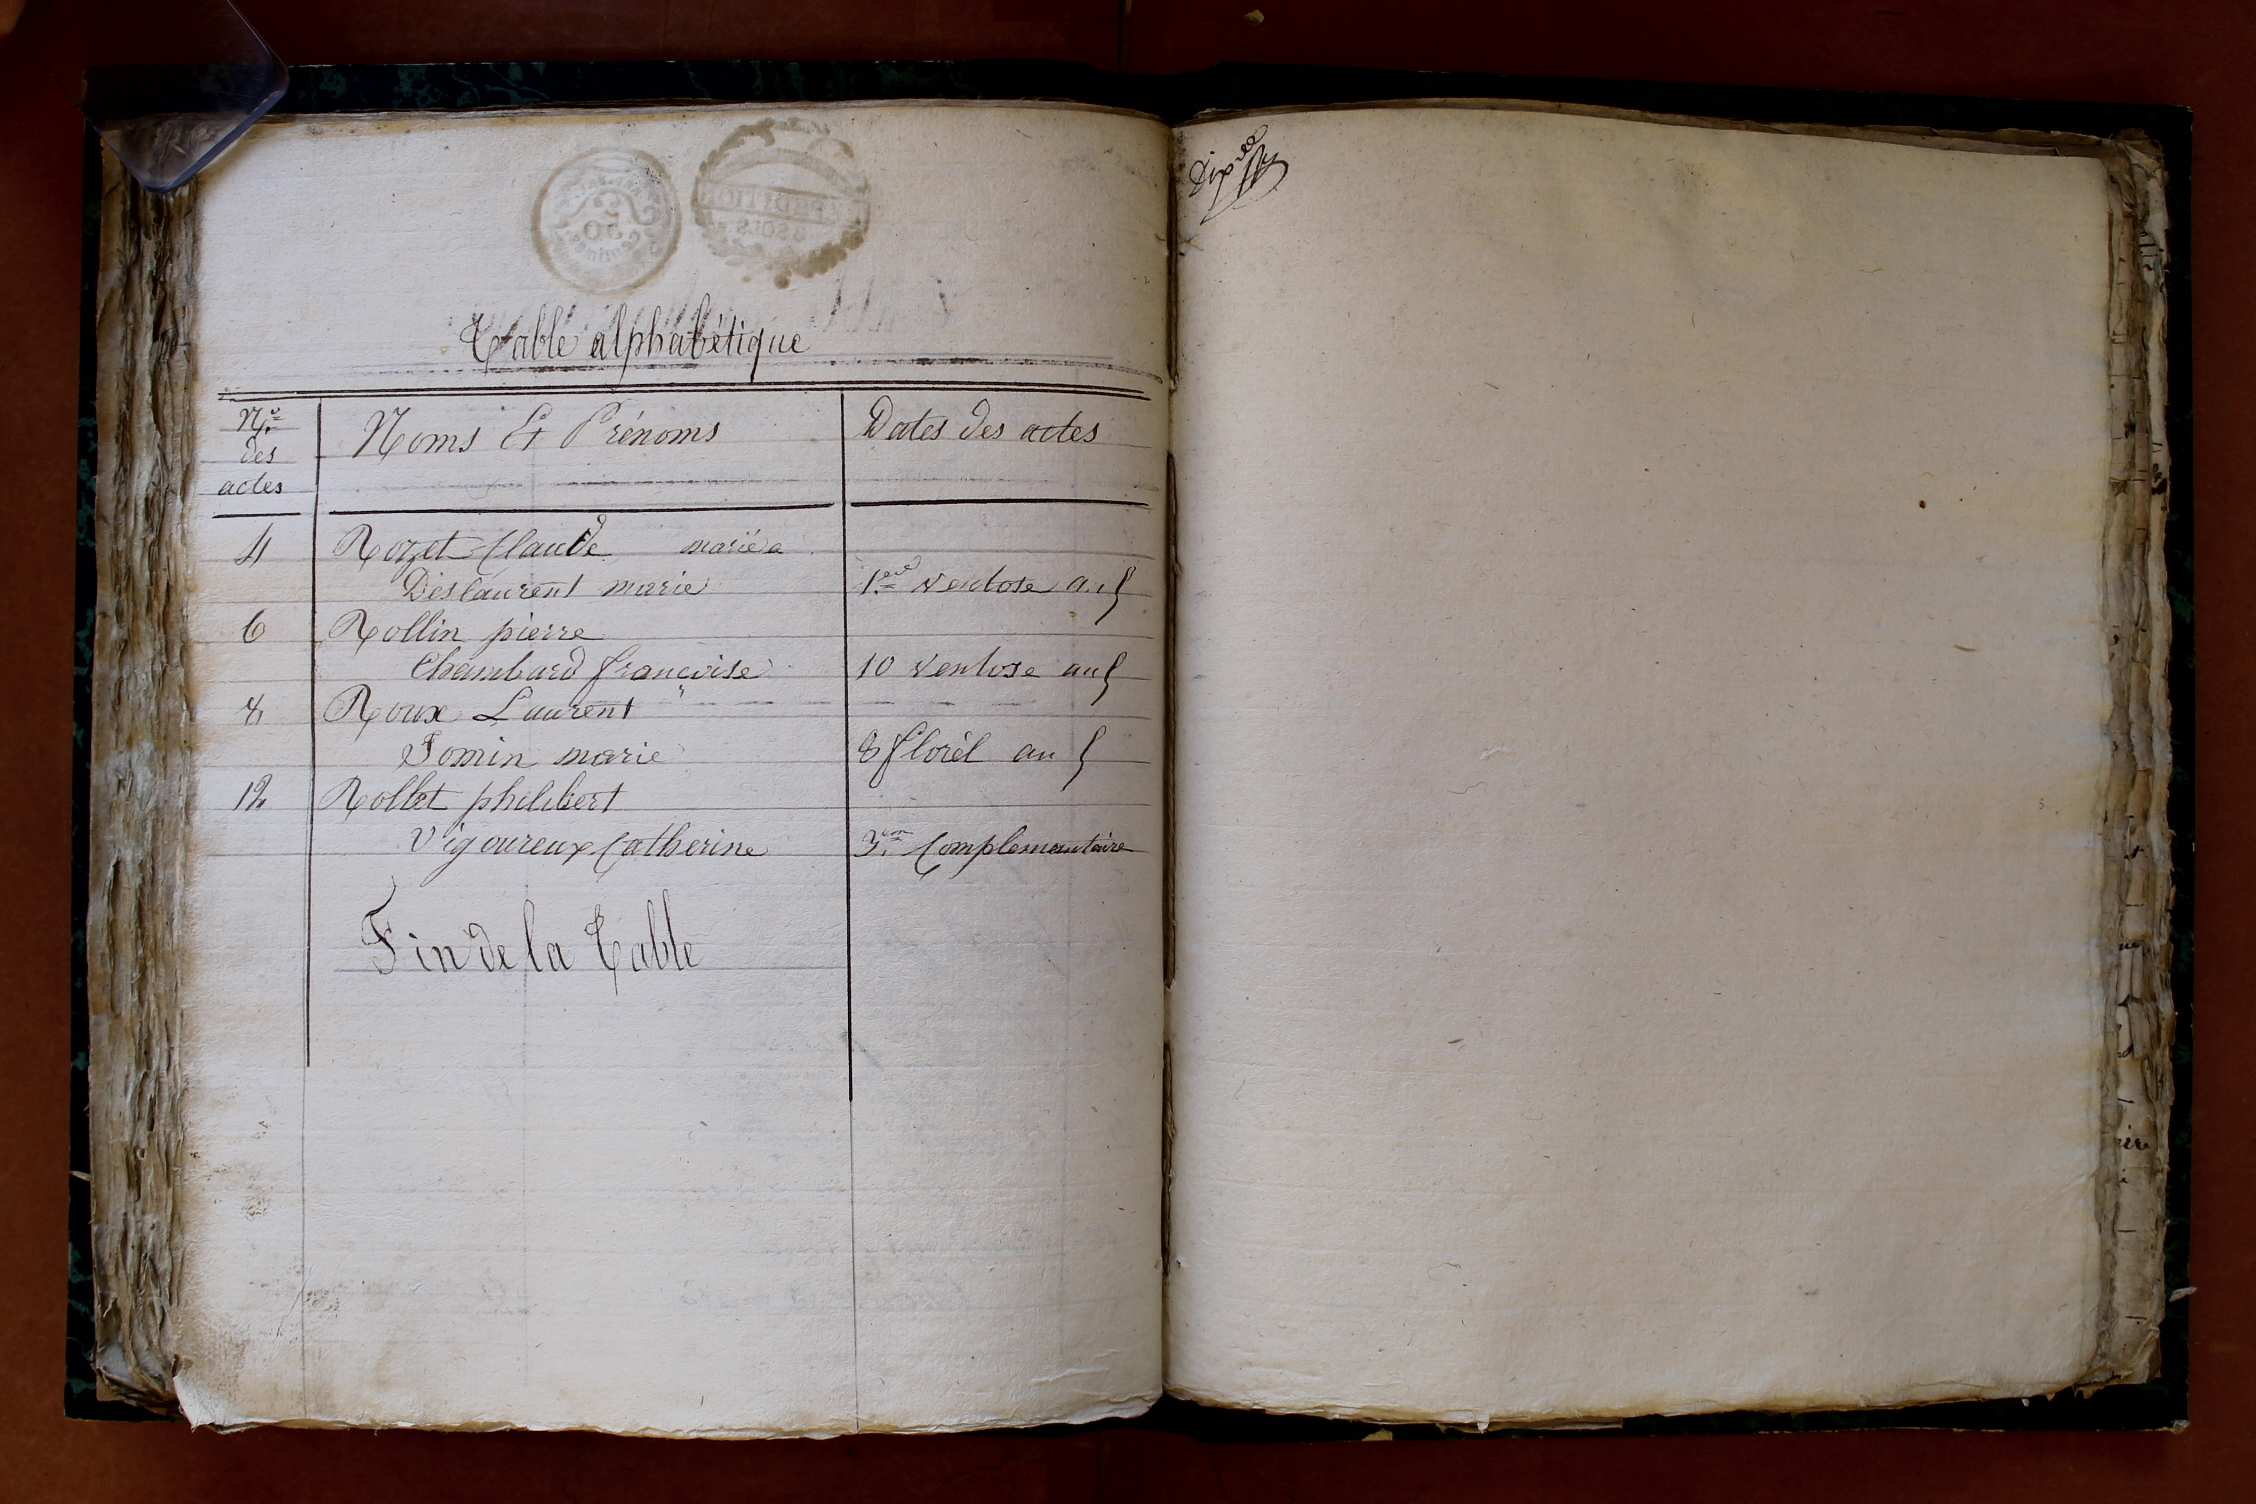 50
centimes
EXPEDITION
SOLS
Table alphabétique
N.º
des
actes
Noms Et Prénoms
Dates des actes
4 Rozet Claude mariéa
Deslaurent marie 1.ere ventose an
6 Rollin pierre
Chambard francoise 10 ventose an
8 Roux Laurent
Tomin marie 8 florél an
12 Rollet philibert
Vigoureux Catherine 3.em Complementaire
Fin de la Table
Dix